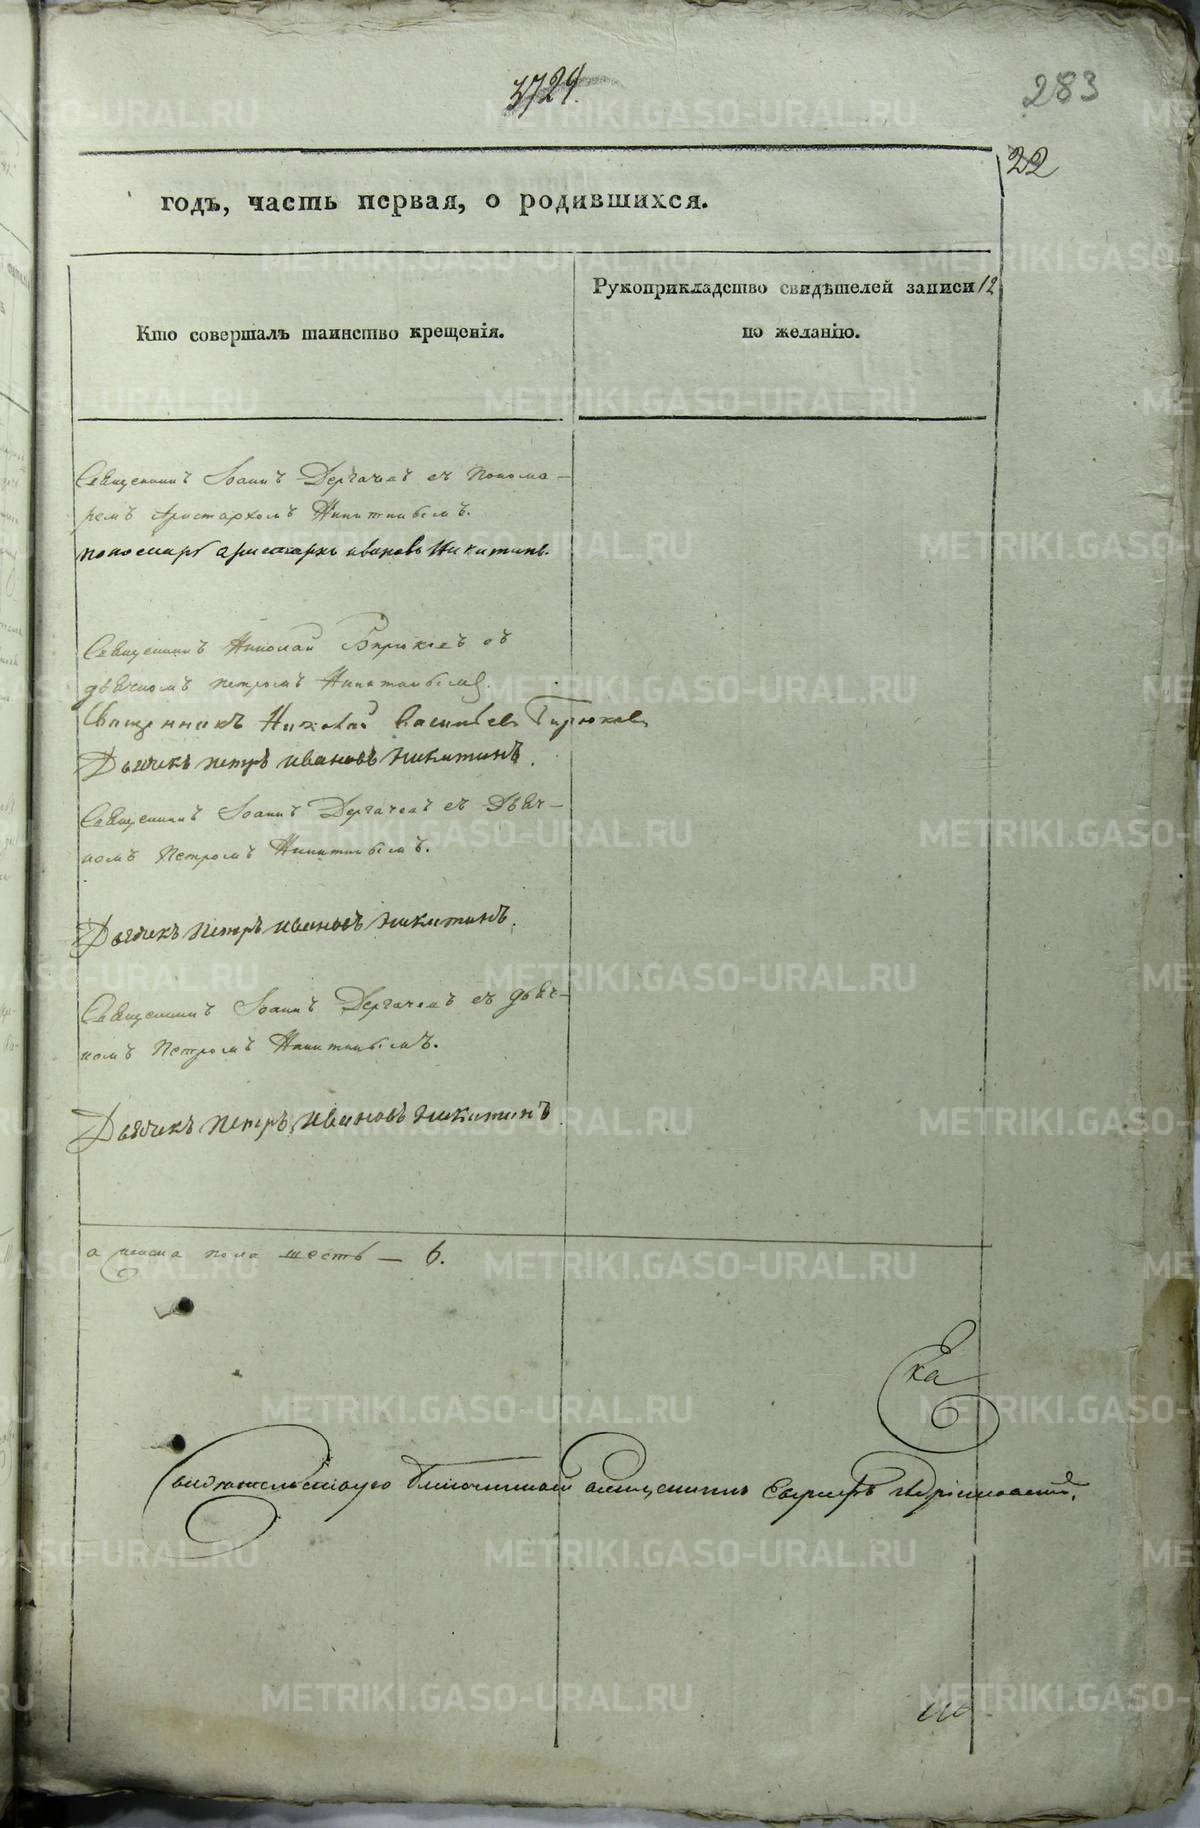 3729.
283
22
годъ, часть первая, о родившихся.
Кто совершалъ таинство крещенія.
Рукоприкладство свидѣтелей записи 12
по желанію.
Священникъ Іоаннъ Дергачевъ съ понома-
ремъ Аристархомъ Никитинымъ.
пономарь аристархъ ивановъ Никитинъ.
Священникъ Николай Бирюковъ съ
дьячкомъ петромъ Никитинымъ.
Священникъ Николай Васильевъ Бирюковъ
Дьячекъ петръ ивановъ никитинъ.
Священникъ Іоаннъ Дергачевъ съ Дьяч-
комъ Петромъ Никитинымъ.
Дьячекъ петръ ивановъ никитинъ.
Священникъ Іоаннъ Дергачевъ съ дьяч-
комъ Петромъ Никитинымъ.
Дьячекъ петръ ивановъ никитинъ.
а женска пола шесть — 6.
Ека
Свидетельствовалъ Благочинный священникъ
METRIKI.GASO-URAL.RU